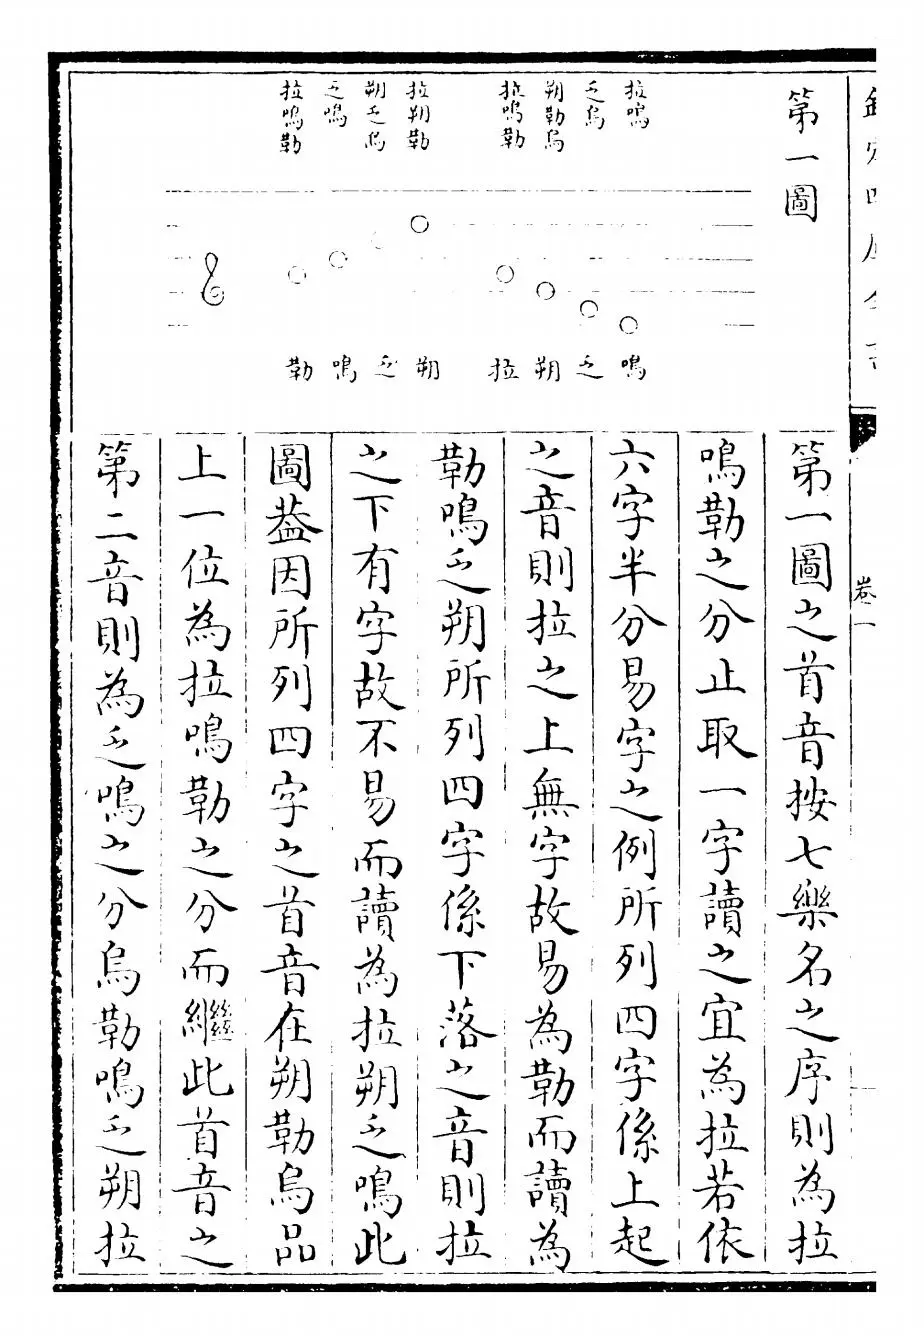 欽定四庫全書
卷一
第一圖
拉鳴
乏烏
朔勒烏
拉鳴勒
拉朔勒
朔乏烏
乏鳴
拉鳴勒
勒鳴乏朔 拉朔乏鳴
第一圖之首音按七樂名之序則為拉
鳴勒之分止取一字讀之宜為拉若依
六字半分易字之例所列四字係上起
之音則拉之上無字故易為勒而讀為
勒鳴乏朔所列四字係下落之音則拉
之下有字故不易而讀為拉朔乏鳴此
圖葢因所列四字之首音在朔勒烏品
上一位為拉鳴勒之分而繼此首音之
第二音則為乏鳴之分烏勒鳴乏朔拉